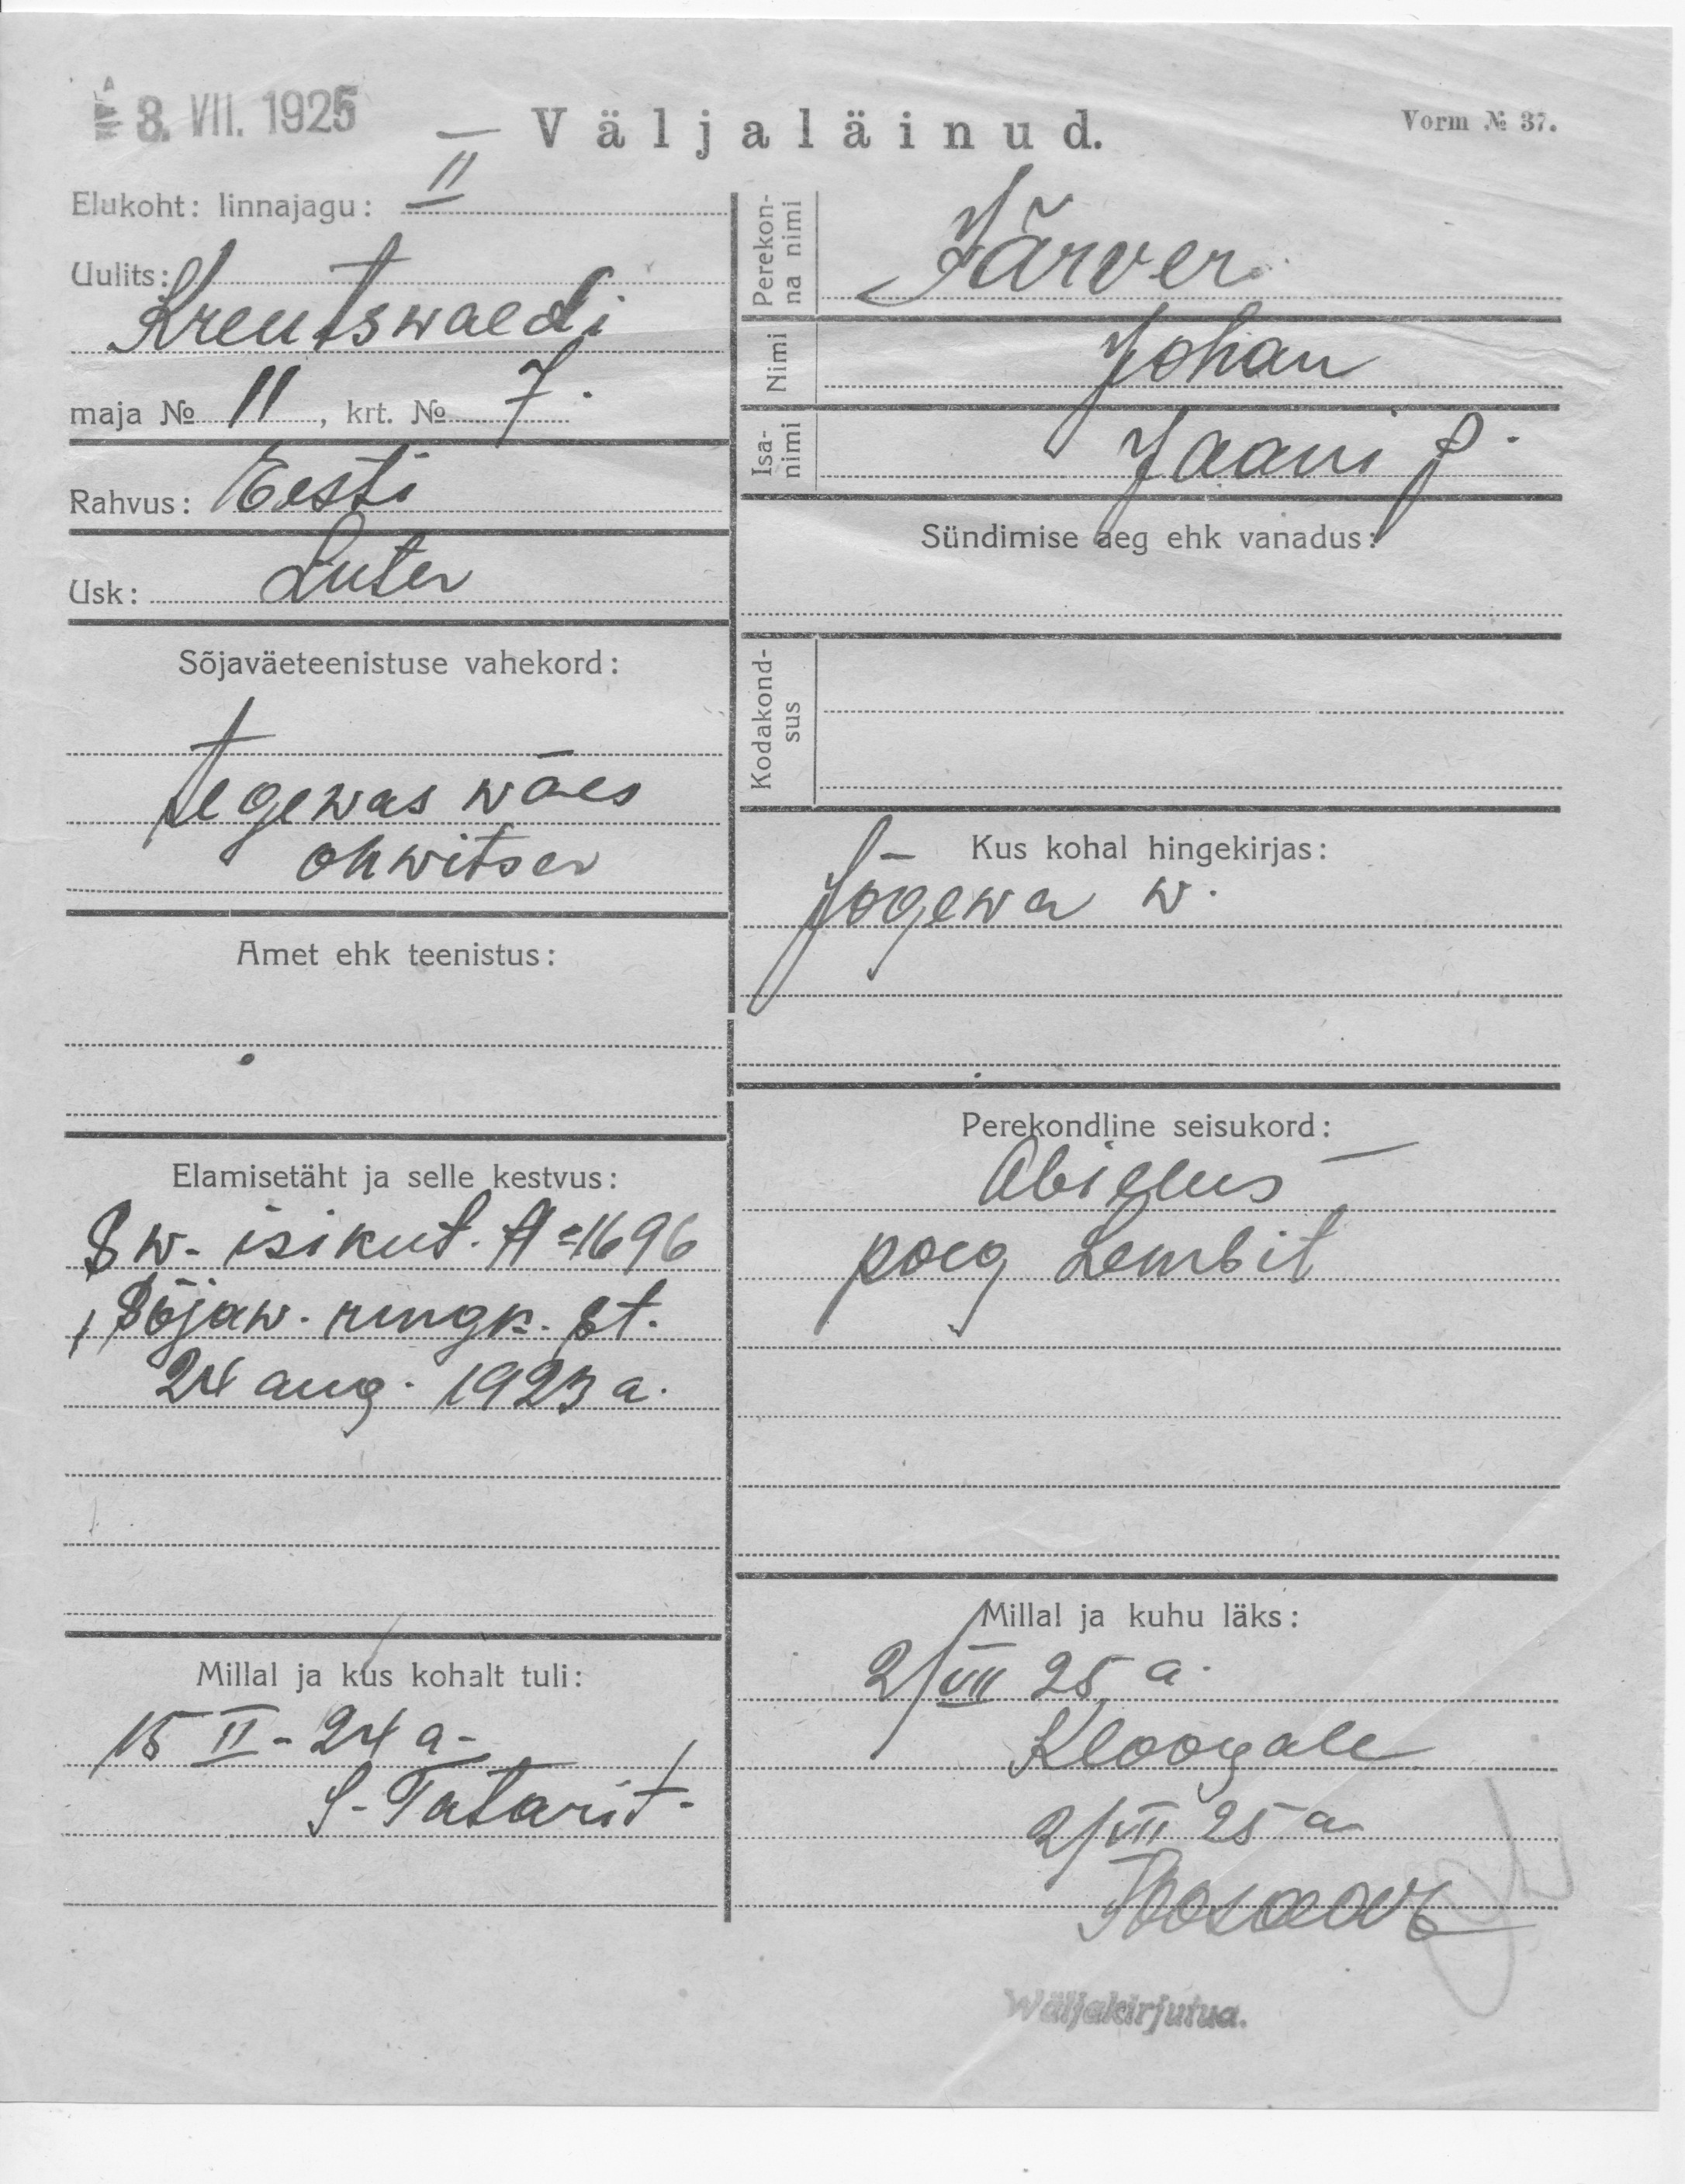 8. VII. 1925
Väljaläinud.
Vorm № 37.
Elukoht: linnajagu: II
Uulits:
Kreutswaldi
maja № 11, krt. № 7.
Rahvus: Eesti
Usk: Luter
Sõjaväeteenistuse vahekord:
tegewas wäes
ohwitser
Amet ehk teenistus:
Elamisetäht ja selle kestvus:
S w. isikut. A=1696
Sõjaw. ringk. st.
24 aug. 1923 a.
Millal ja kus kohalt tuli:
15 II - 24 a.
S-Tatarit.
Perekon-
na nimi
Järver
Nimi
Johan
Isa-
nimi
Jaani p.
Sündimise aeg ehk vanadus:
Kodakond-
sus
Kus kohal hingekirjas:
Jõgewa w.
Perekondline seisukord:
Abielus
poeg Lembit
Millal ja kuhu läks:
2/VII 25 a.
Kloogale
2/VII 25 a
Wäljakirjutua.